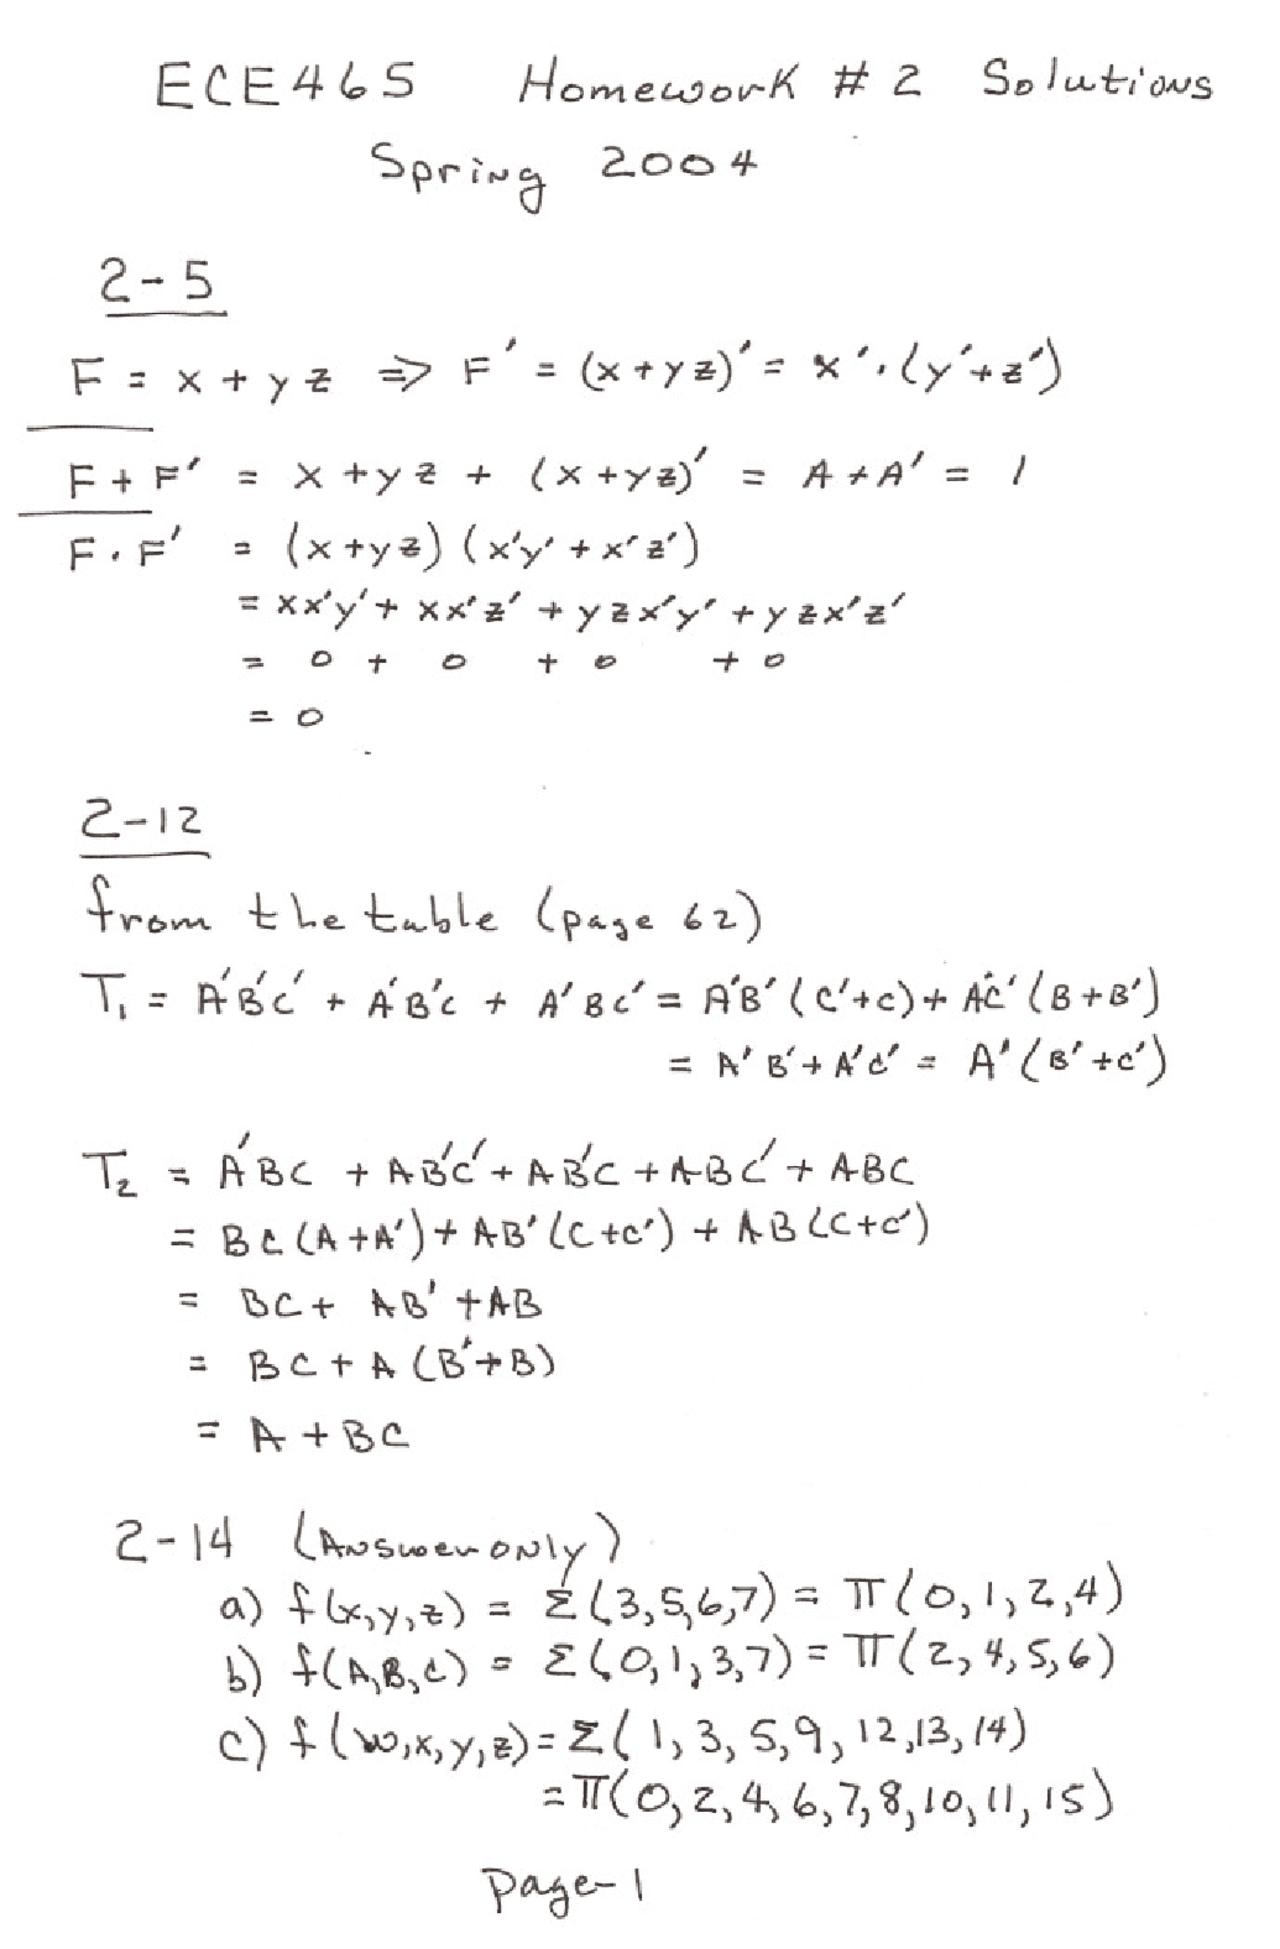 ECE465 Homework # 2 Solutions
Spring 2004
2-5
F = x + y z ⇒ F' = (x + y z)' = x' · (y' + z')
F + F' = x + y z + (x + y z)' = A + A' = 1
F · F' = (x + y z) (x'y' + x'z')
= xx'y' + xx'z' + y z x'y' + y z x'z'
= 0 + 0 + 0 + 0
= 0
2-12
from the table (page 62)
T₁ = A'B'C' + A'B'C + A'BC' = A'B'(C'+C) + A'C'(B+B')
= A'B' + A'C' = A'(B'+C')
T₂ = A'BC + AB'C' + AB'C + ABC' + ABC
= BC(A+A') + AB'(C+C') + AB(C+C')
= BC + AB' + AB
= BC + A(B'+B)
= A + BC
2-14 (Answer only)
a) f(x,y,z) = Σ(3,5,6,7) = π(0,1,2,4)
b) f(A,B,C) = Σ(0,1,3,7) = π(2,4,5,6)
c) f(w,x,y,z) = Σ(1,3,5,9,12,13,14)
= π(0,2,4,6,7,8,10,11,15)
page-1